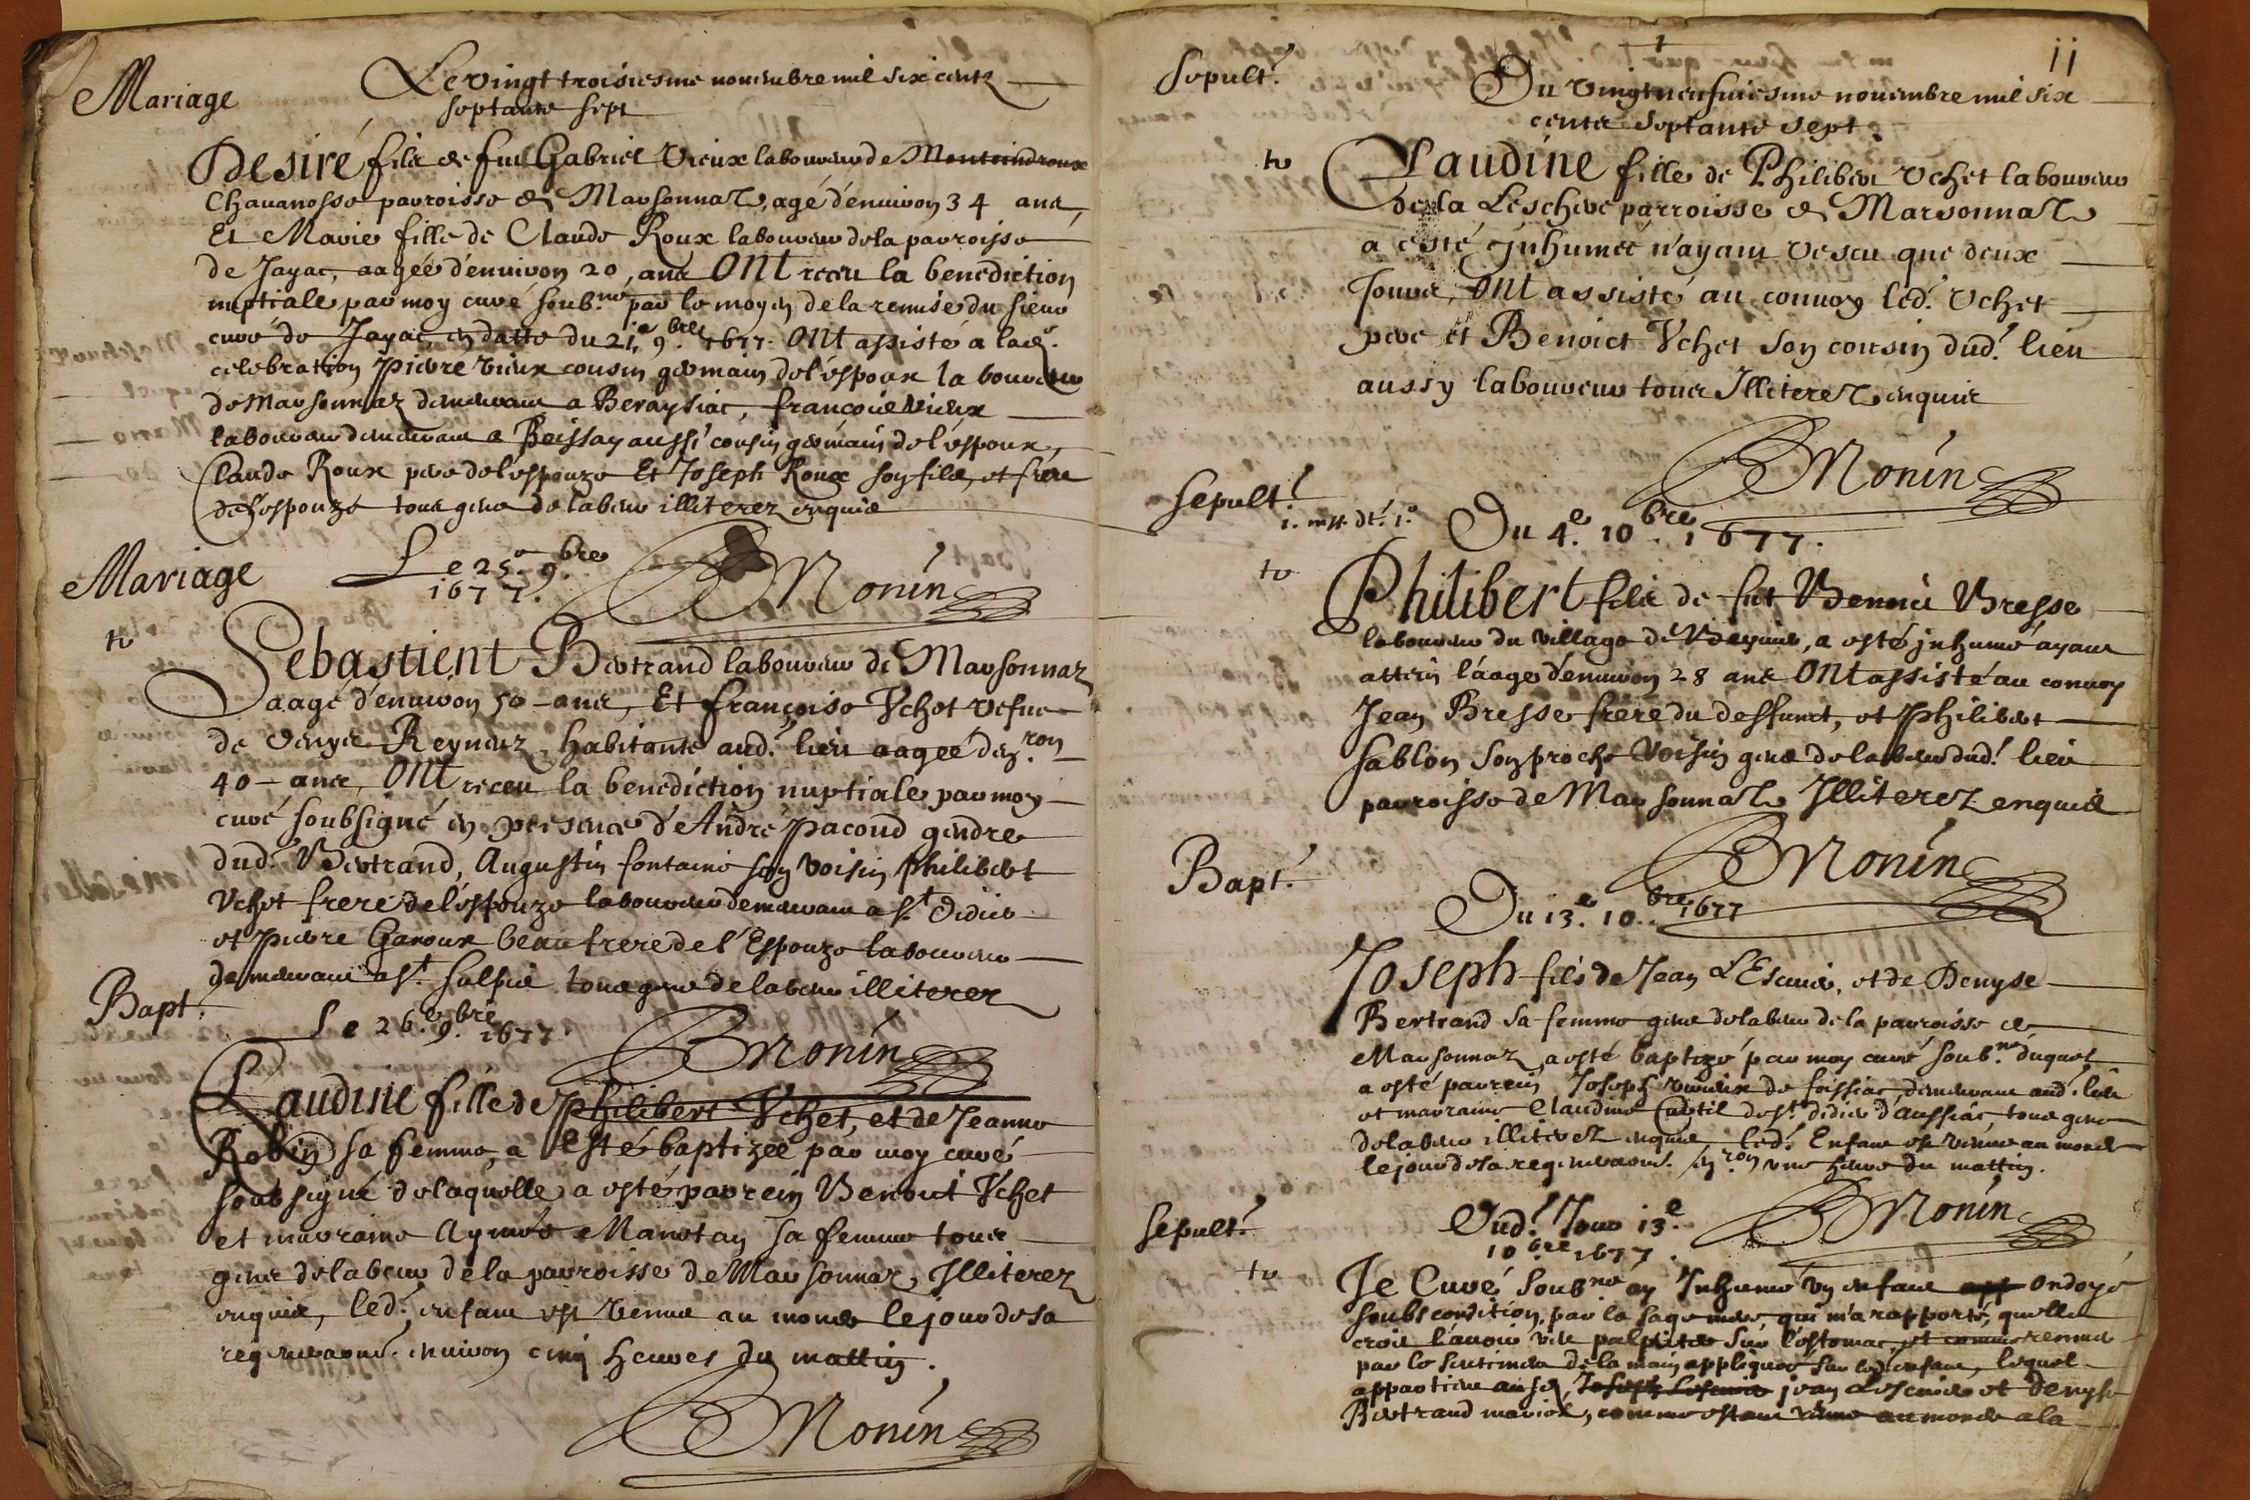 Mariage
Le vingt troisiesme novembre mil six cents
septante sept
Desiré fils de feu Gabriel Vieux laboureur de
Chavanosse parroisse de Marsonnaz, agé d'environ 34 ans,
Et Marie fille de Claude Roux laboureur de la parroisse
de Jayac, aagée d'environ 20, ans Ont receu la benediction
nuptiale par moy curé soub.né par le moyen de la remise du sieur
curé de Jayac, en datte du 21.e 9.bre 1677. Ont assisté a lad.e
celebration Pierre Vieux cousin germain de l'éspoux laboureur
de Marsonnaz demeurant a Beraysiat, françois Vieux
laboureur demeurant a Boissay aussi cousin germain de l'éspoux,
Claude Roux pere de l'espouze Et Joseph Roux son fils, et frere
de l'espouze tous gens de labeur illiterez enquis
BMonin
Mariage
Le 25.e 9.bre
1677.
to
Sebastient Bertrand laboureur de Marsonnaz
aagé d'environ 50 ans, Et françoise Vchet vefue
de Denys Reyneuz habitante aud. lieu aagée d'en.ron
40 ans, Ont receu la benediction nuptiale par moy
curé soubsigné en presence d'André Pacoud gendre
dud. Bertrand, Augustin fontaine son voisin Philibert
Vchet frere de l'éspouze laboureur demeurant a St. Didier
et Pierre Garoux beau frere de l'Espouze laboureur
demeurant a St. Sulpis tous gens de labeur illiterez
BMonin
Bapt.
Le 26.e 9.bre 1677.
Claudine fille de Philibert Vchet, et de Jeanne
Robin sa femme, a esté baptizée par moy curé
soubsigné de laquelle a esté parrein Benoict Vchet
et marraine Aymée Manotan sa femme tous
gens de labeur de la parroisse de Marsonnaz, Illiterez
enquis, led. enfant est venue au monde le jour de sa
regeneraon. environ cinq heures du mattin.
BMonin
11
Sepult.
Du vingtneufuiesme novembre mil six
cents septante sept.
to
Claudine fille de Philibert Vchet laboureur
de la Leschere parroisse de Marsonnaz
a esté inhumée n'ayant vescu que deux
Jours, Ont assisté au convoy led. Vchet
pere et Benoict Vchet son cousin dud. lieu
aussy laboureur tous Illiterez enquis
BMonin
Sepult.
Du 4.e 10.bre 1677.
to
Philibert fils de fut Benoict Bresse
laboureur du village de, a esté inhumé ayant
atteint l'aage d'environ 28 ans Ont assisté au convoy
Jean Bresse frere du deffunct, et Philibert
Sablon son proche voisin gens de labeur dud. lieu
parroisse de Marsonnaz Illiterez enquis
BMonin
Bapt.
Du 13.e 10.bre 1677
Joseph fils de Jean L'Escuier, et de Denyse
Bertrand sa femme gens de labeur de la parroisse de
Marsonnaz a esté baptizé par moy curé soub.né duquel
a esté parrein Joseph de foissiac, demeurant aud. lieu
et marraine Claudine Curtil de St. didier d'aussiac, tous gens
de labeur illiterez enquis, led. Enfant est venu au monde
le jour de sa regeneraon. en.ron vne heure du mattin.
BMonin
Sepult.
Dud. Jour 13.e
10.bre 1677.
to
Je Curé soub.né ay Inhumé vn enfant ondoyé
soubs condition, par la sage mere, qui m'a rapporté, quelle
croit l'avoir veu palpiter sur l'estomac, et comme remuer
par le sentiment de la main appliquée sur led. enfant, lequel
appartient aux Joseph Lescuier jean Lescuier et Denyse
Bertrand mariés, comme estant venu au monde a la